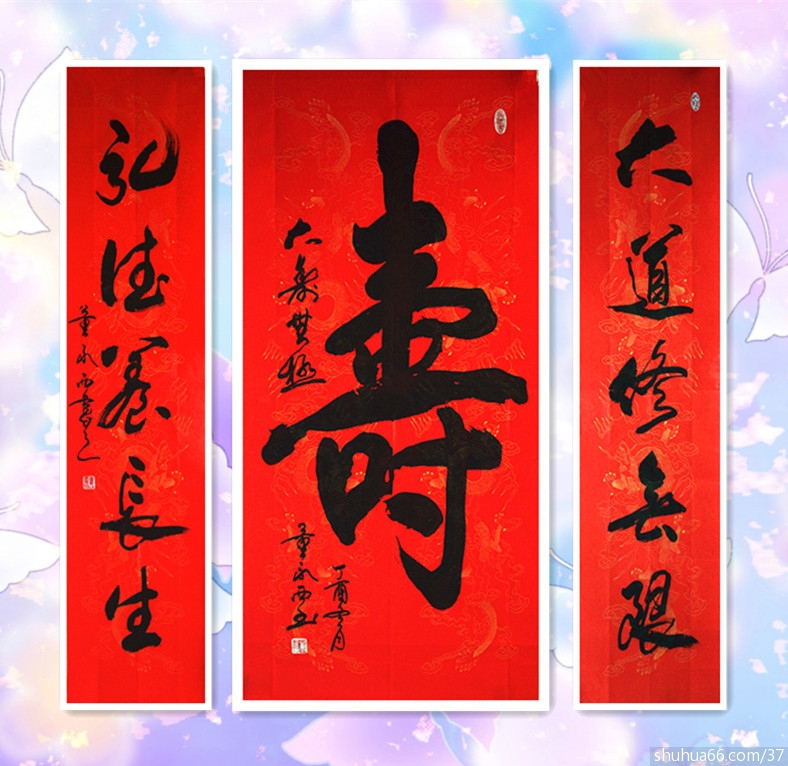 大道修無限
壽
大壽無極
丁酉
董永西书
弘德養長生
董永西書
shuhua66.com/37